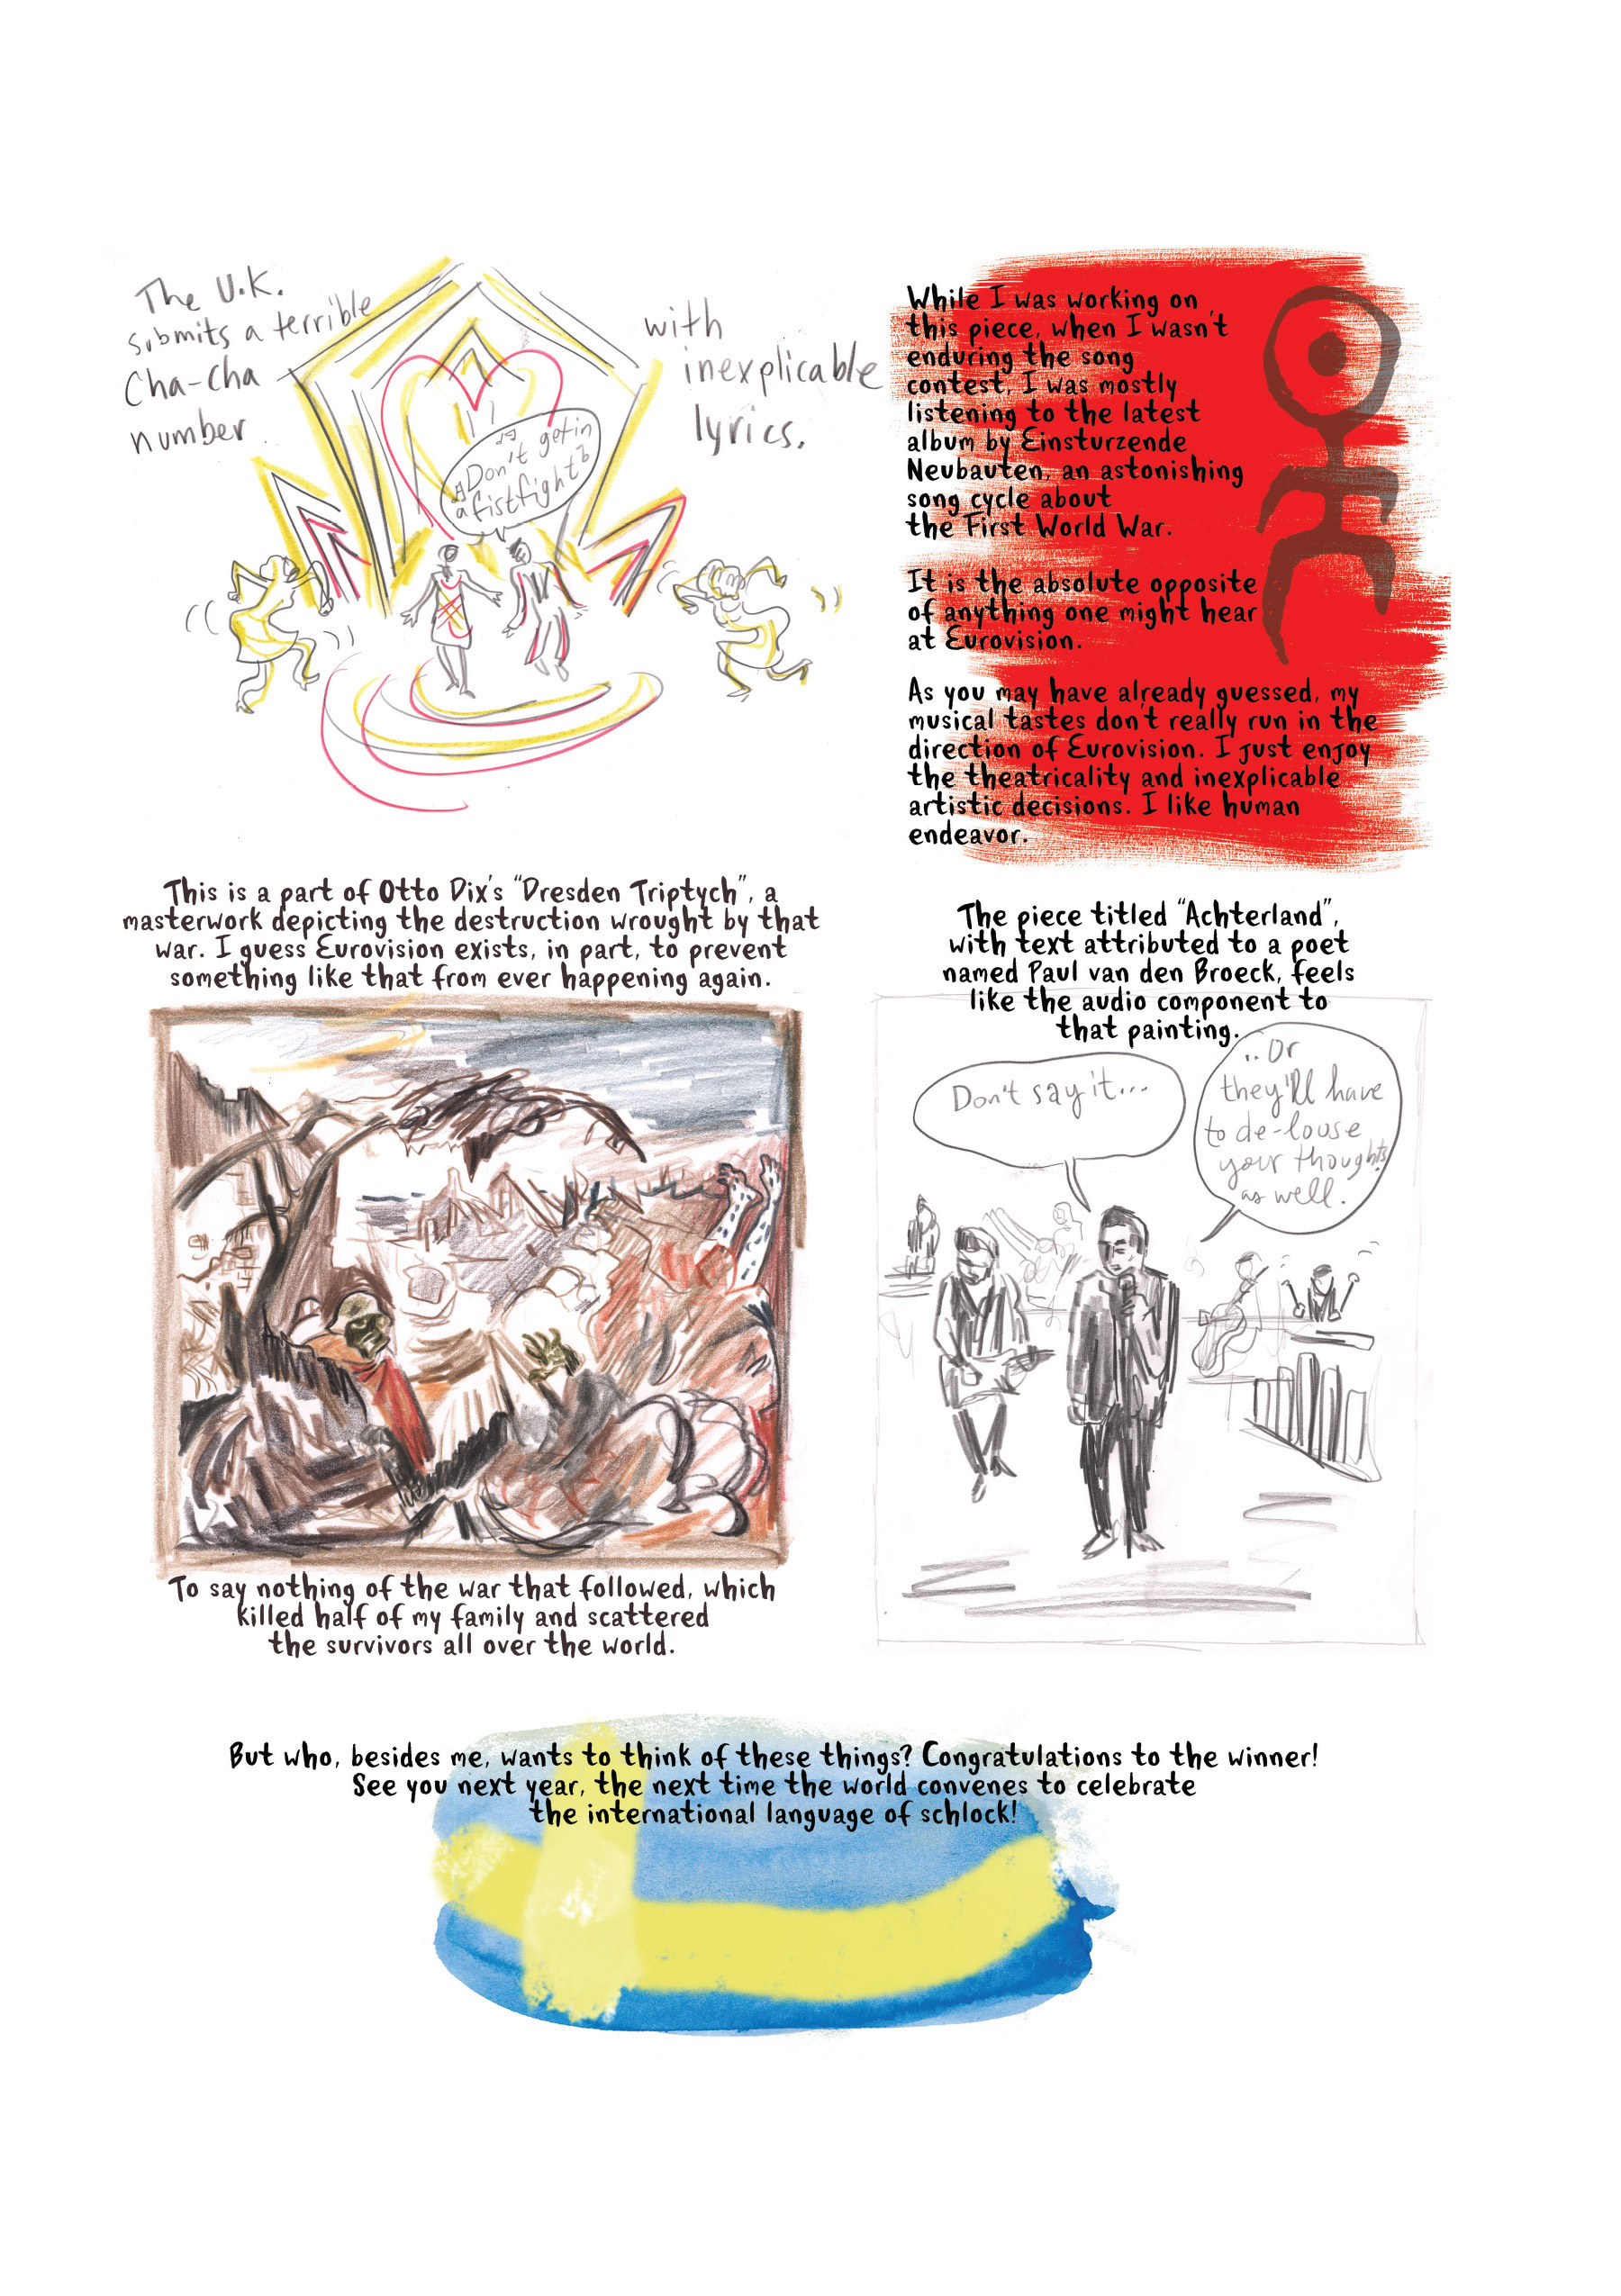 The U.K.
submits a terrible
Cha-cha
number
with
inexplicable
lyrics.
Don't get in
a fistfight
While I was working on
this piece, when I wasn't
enduring the song
contest, I was mostly
listening to the latest
album by Einsturzende
Neubauten, an astonishing
song cycle about
the First World War.
It is the absolute opposite
of anything one might hear
at Eurovision.
As you may have already guessed, my
musical tastes don't really run in the
direction of Eurovision. I just enjoy
the theatricality and inexplicable
artistic decisions. I like human
endeavor.
This is a part of Otto Dix's "Dresden Triptych", a
masterwork depicting the destruction wrought by that
war. I guess Eurovision exists, in part, to prevent
something like that from ever happening again.
To say nothing of the war that followed, which
killed half of my family and scattered
the survivors all over the world.
The piece titled "Achterland",
with text attributed to a poet
named Paul van den Broeck, feels
like the audio component to
that painting.
Don't say it...
..Or
they'll have
to de-louse
your thoughts
as well.
But who, besides me, wants to think of these things? Congratulations to the winner!
See you next year, the next time the world convenes to celebrate
the international language of schlock!